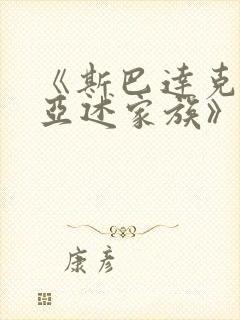 《斯巴达克
亚述家族》
康彦